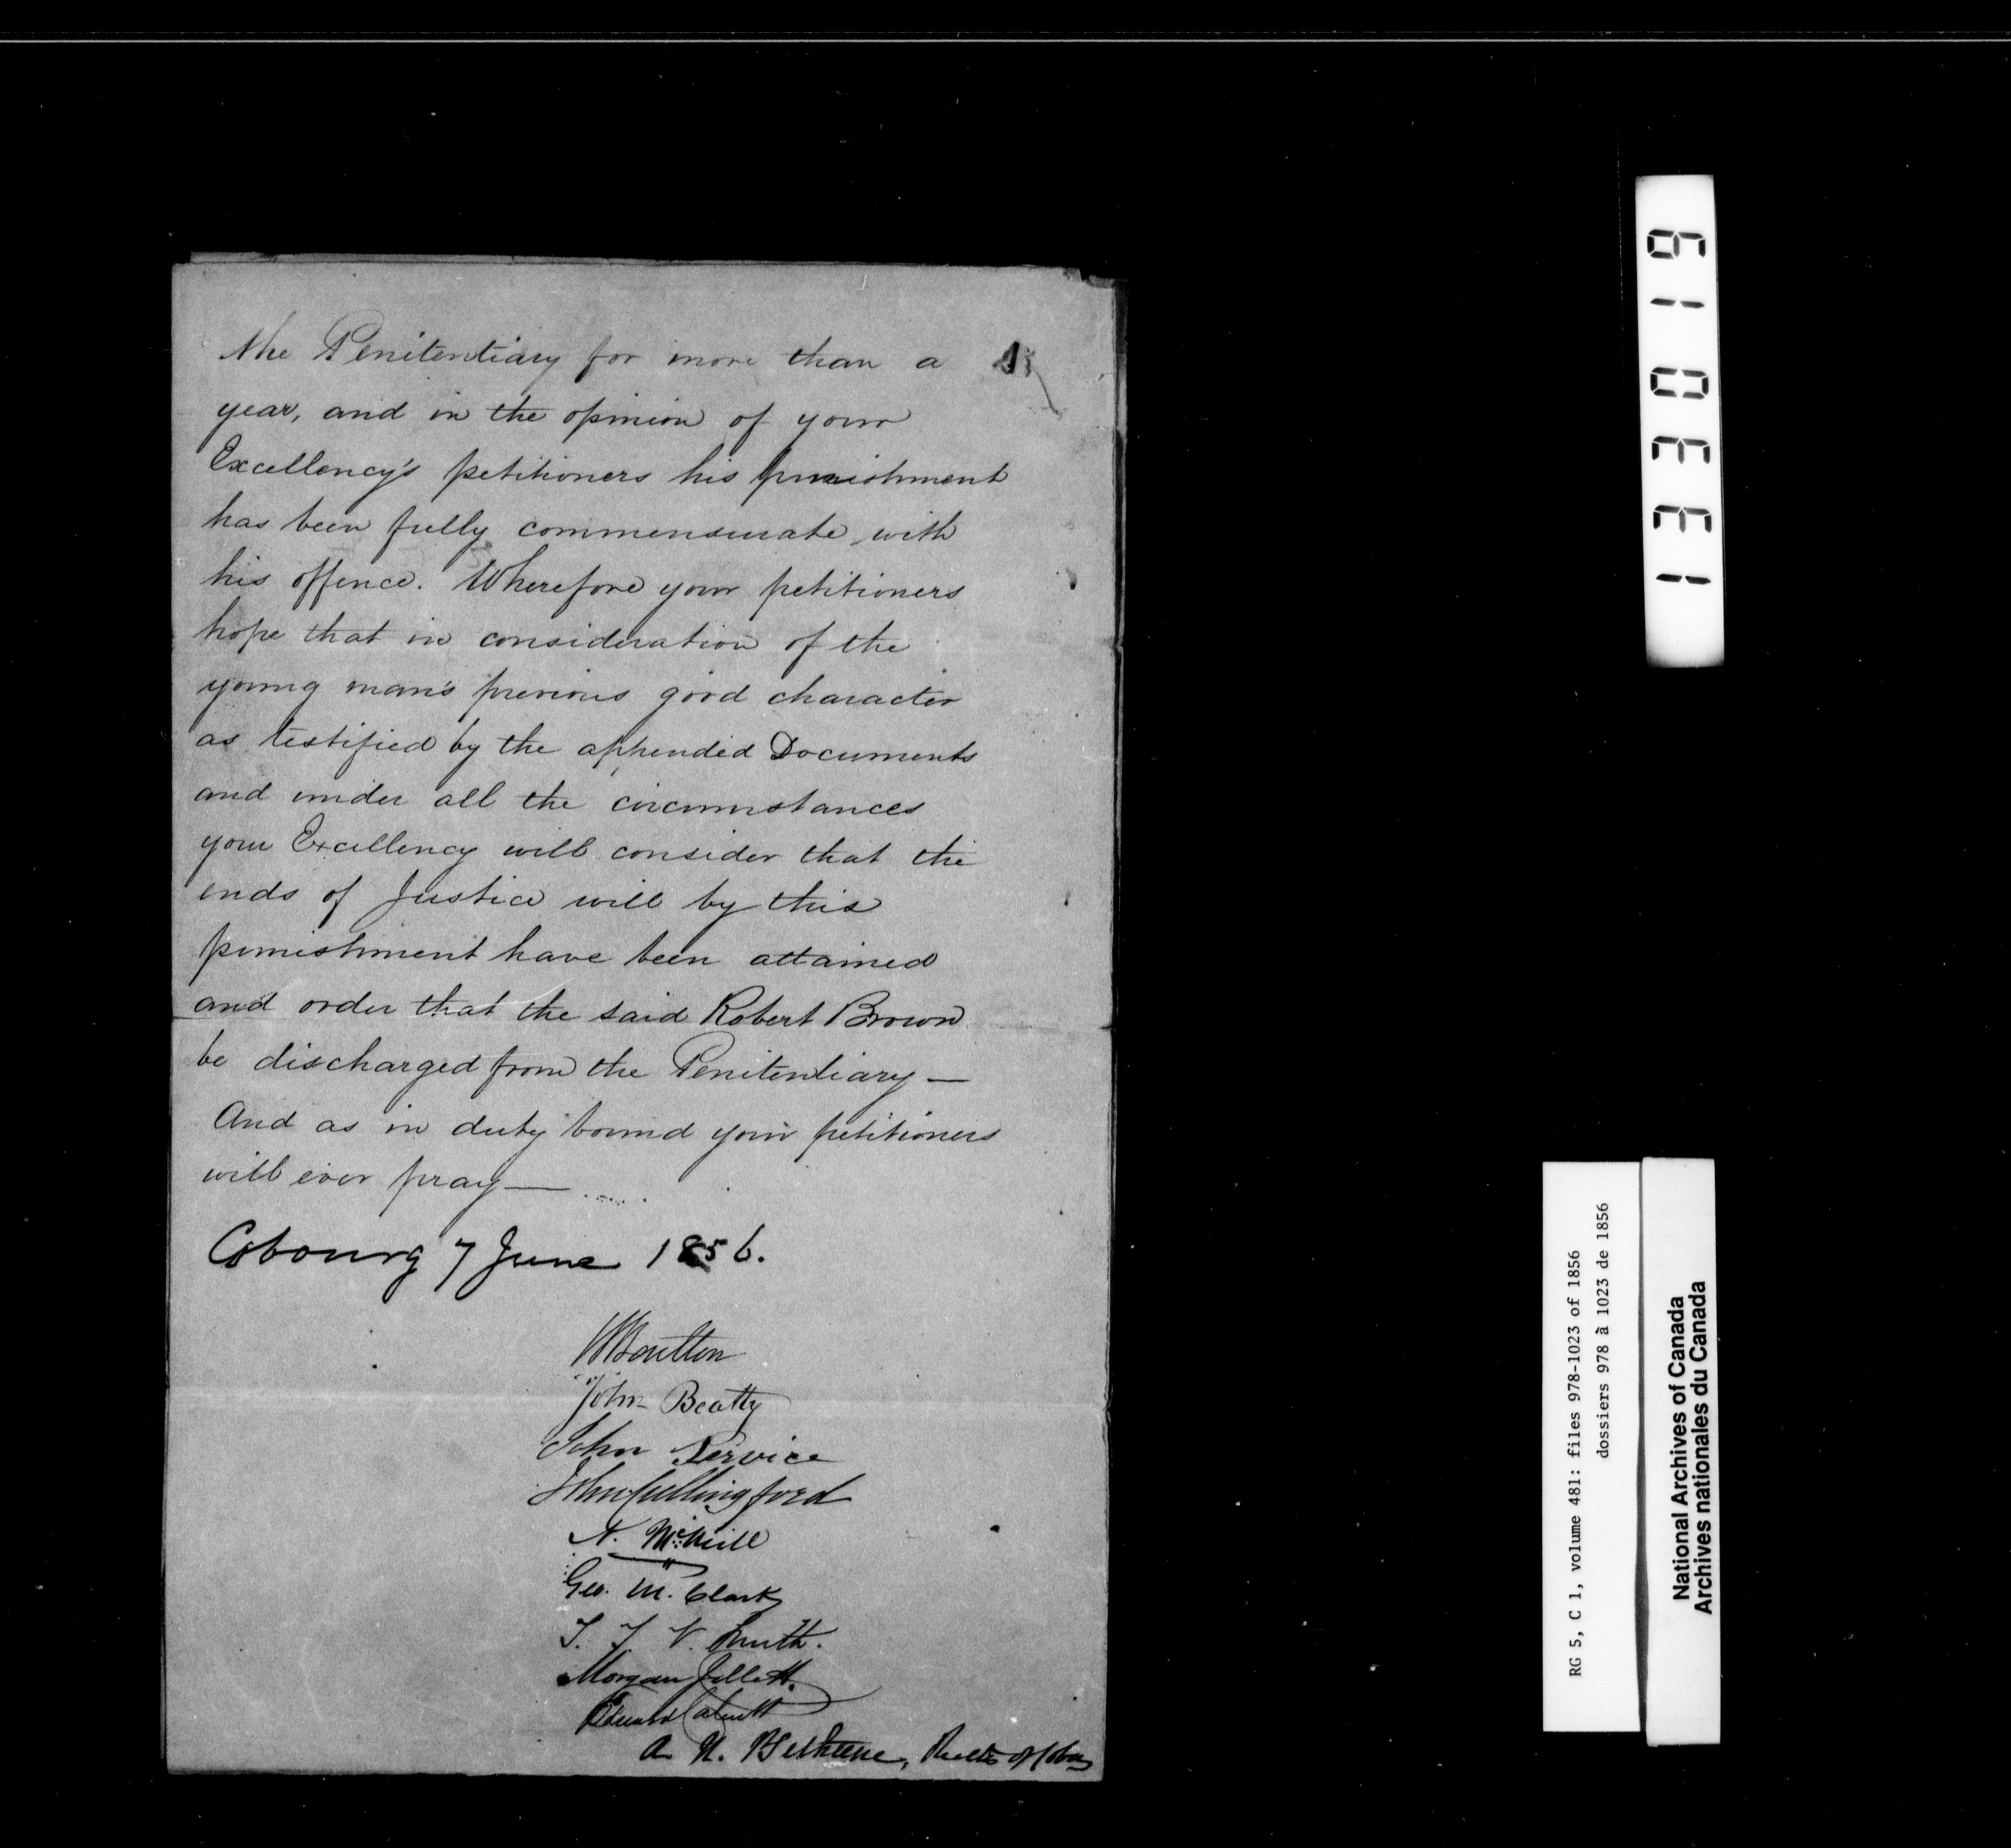 the Penitentiary for more than a
year, and in the opinion of your
Excellency's petitioners his punishment
has been fully commensurate with
his offence. Wherefore your petitioners
hope that in consideration of the
young man's previous good character
as testified by the appended Documents
and under all the circumstances
your Excellency will consider that the
ends of Justice will by this
punishment have been attained
and order that the said Robert Brown
be discharged from the Penitentiary —
And as in duty bound your petitioners
will ever pray —
Cobourg 7 June 1856.
Boulton
John Beatty
John Service
John Cullingford
A. McNeill
Geo. M. Clark
Smith.
Morgan Jellett.
Edward
A. N. Bethune, Rector of
131019
RG 5, C 1, volume 481: files 978-1023 of 1856
dossiers 978 à 1023 de 1856
National Archives of Canada
Archives nationales du Canada